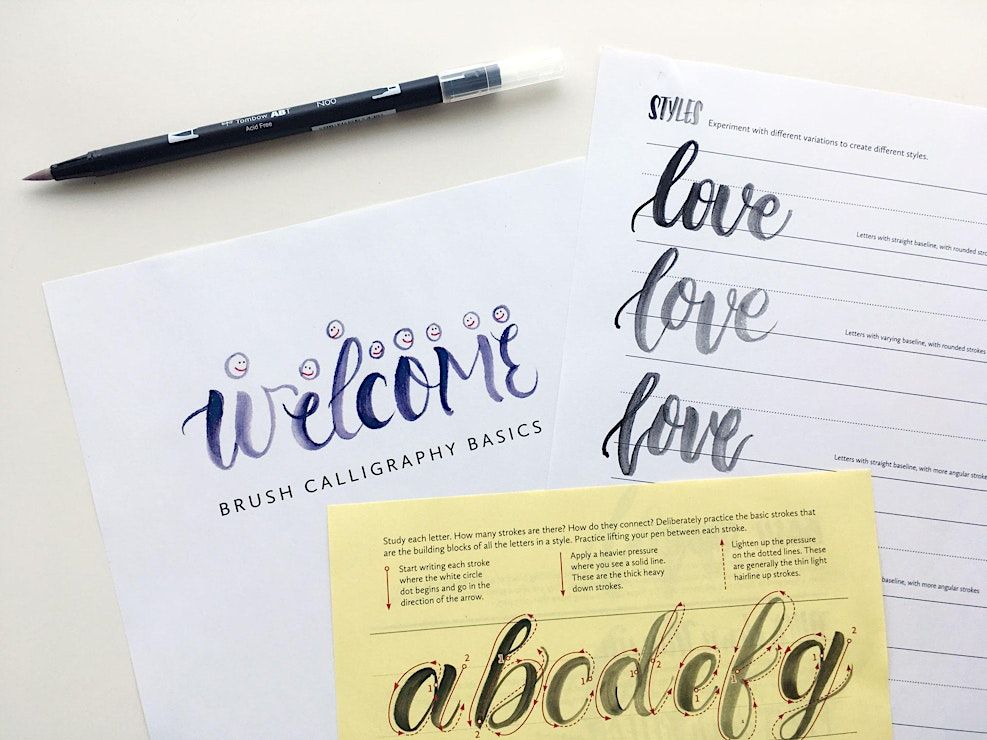 Tombow ABT
N00
Acid Free
STYLES Experiment with different variations to create different styles.
love
Letters with straight baseline, with rounded
love
Letters with varying baseline, with rounded strokes
love
Letters with straight baseline, with more angular
baseline, with more angular strokes
welcome
BRUSH CALLIGRAPHY BASICS
Study each letter. How many strokes are there? How do they connect? Deliberately practice the basic strokes that
are the building blocks of all the letters in a style. Practice lifting your pen between each stroke.
Start writing each stroke
where the white circle
dot begins and go in the
direction of the arrow.
Apply a heavier pressure
where you see a solid line.
These are the thick heavy
down strokes.
Lighten up the pressure
on the dotted lines. These
are generally the thin light
hairline up strokes.
a b c d e f g